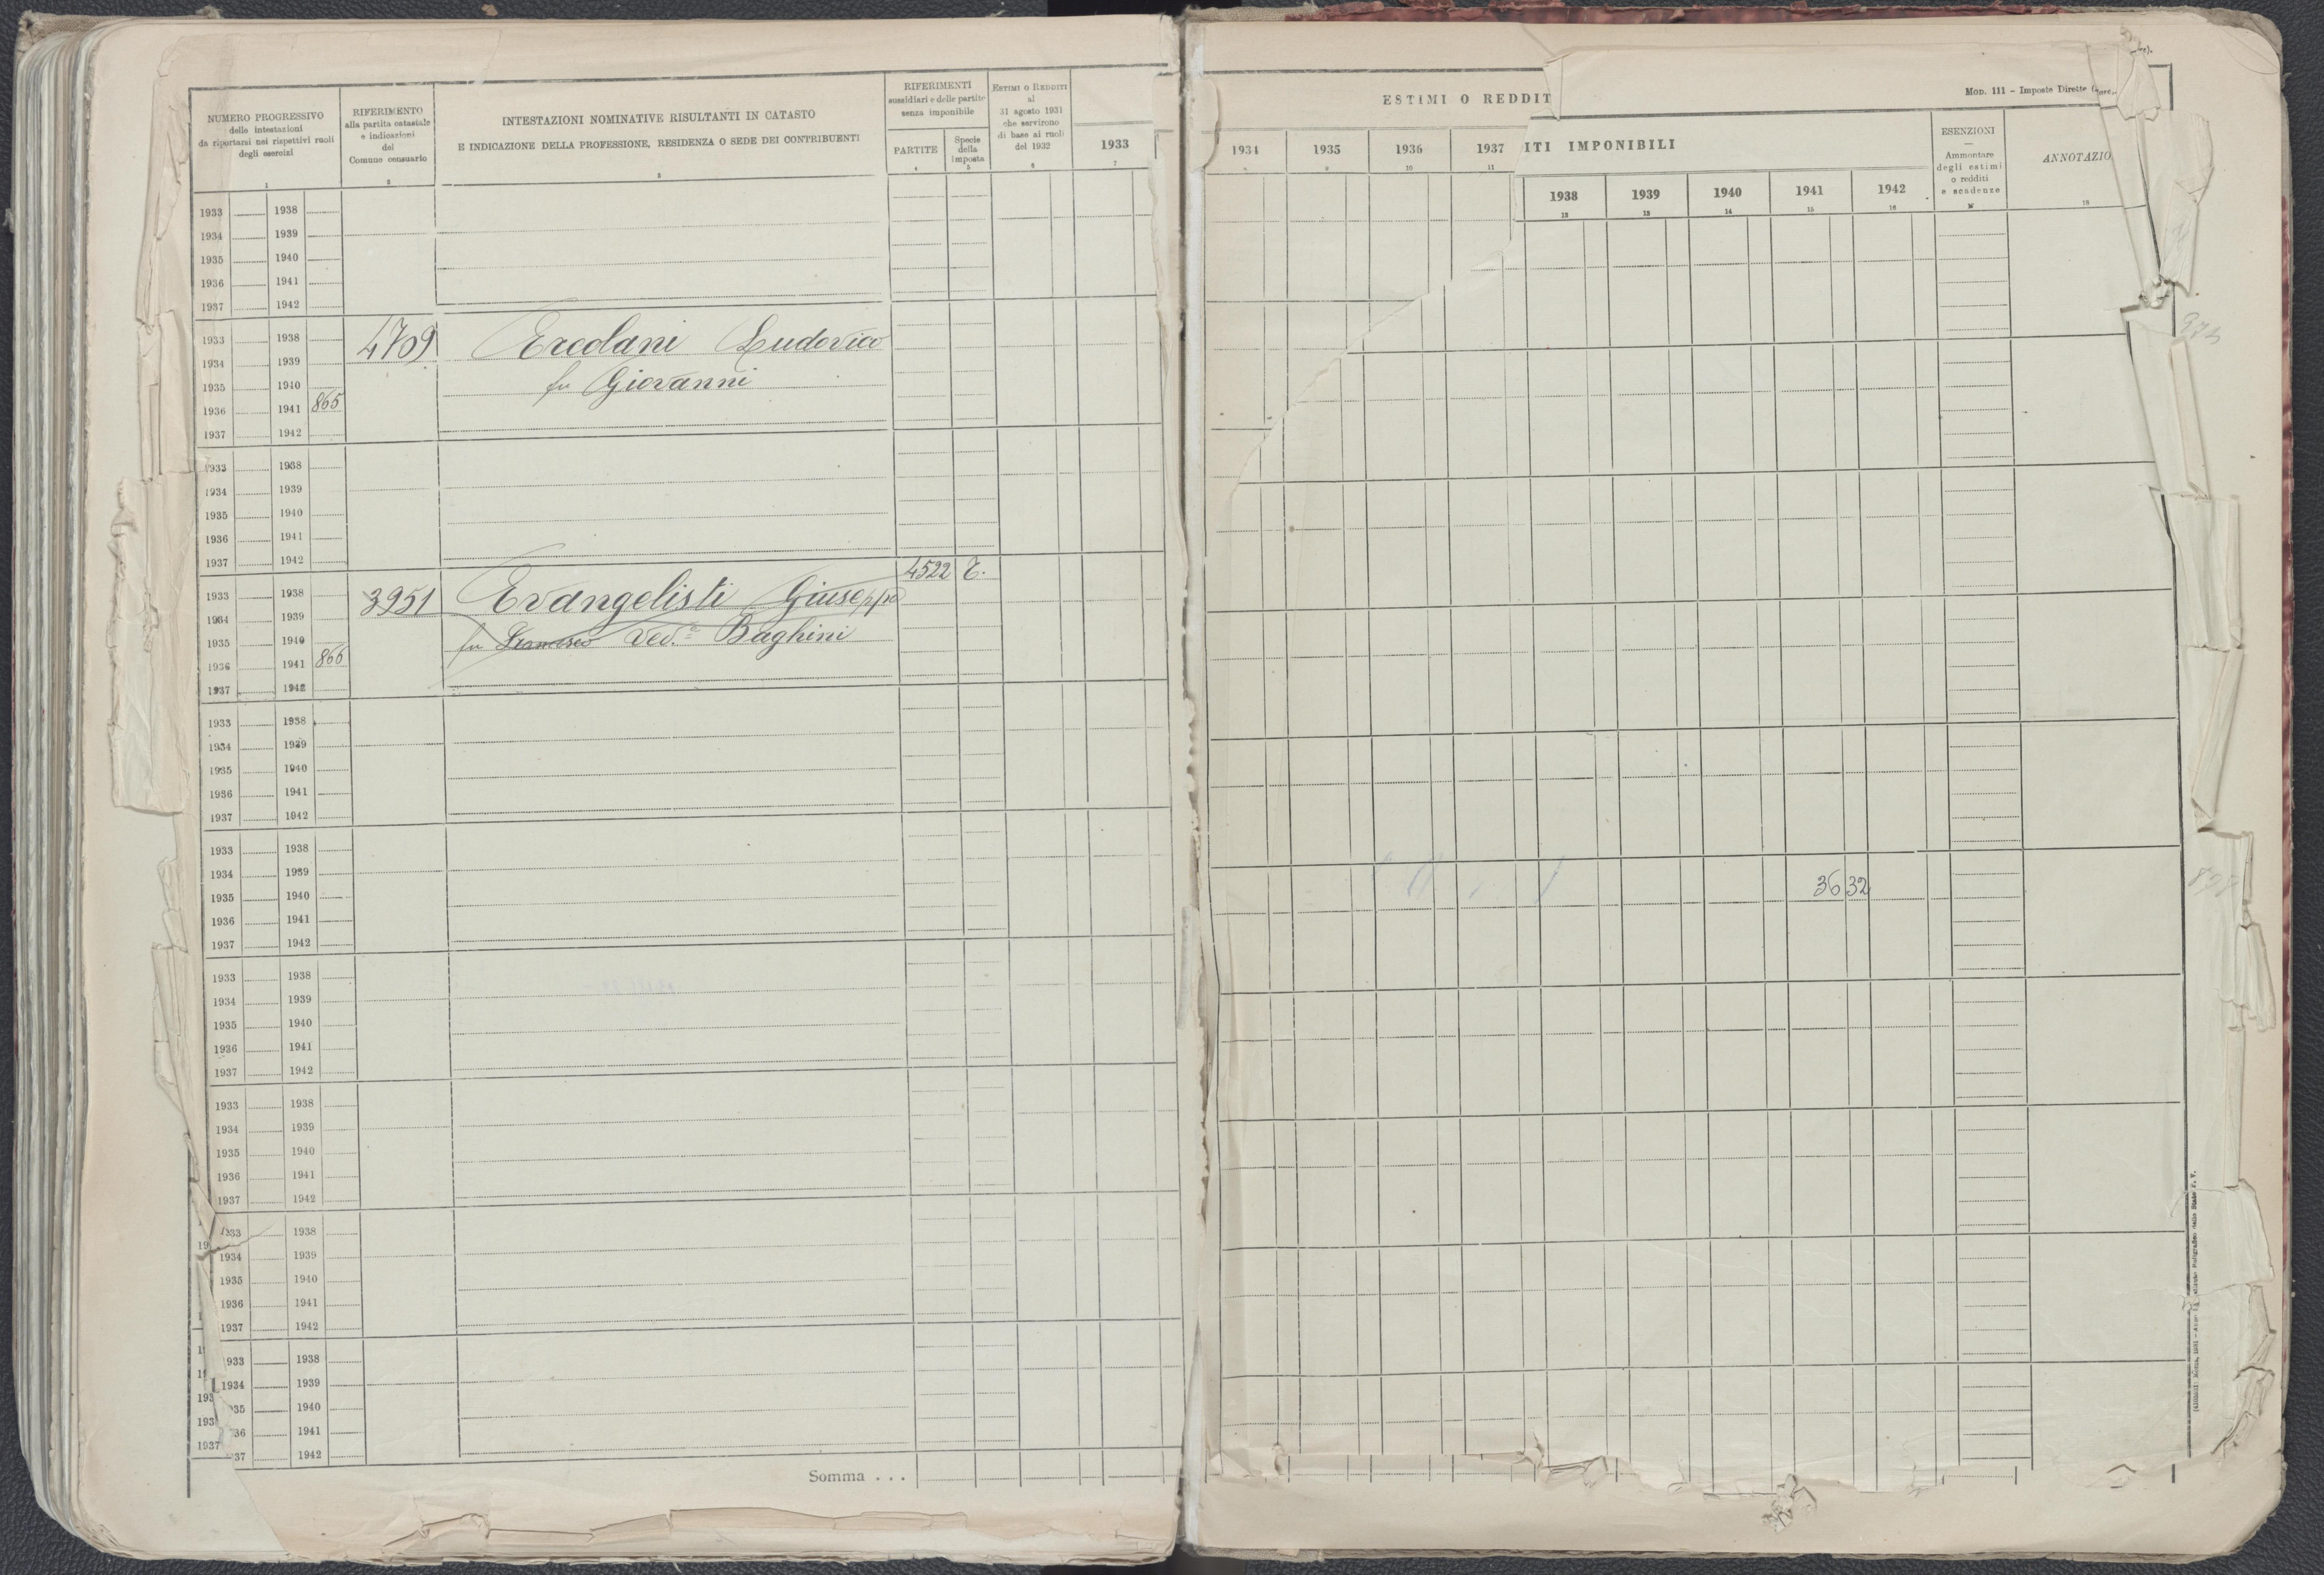 NUMERO PROGRESSIVO
delle intestazioni
da riportarsi nei rispettivi ruoli
degli esercizi
1
RIFERIMENTO
alla partita catastale
e indicazioni
del
Comune censuario
2
INTESTAZIONI NOMINATIVE RISULTANTI IN CATASTO
E INDICAZIONE DELLA PROFESSIONE, RESIDENZA O SEDE DEI CONTRIBUENTI
3
RIFERIMENTI
sussidiari e delle partite
senza imponibile
PARTITE
4
Specie
della
imposta
5
ESTIMI O REDDITI
al
31 agosto 1931
che servirono
di base ai ruoli
del 1932
6
1933
7
1933 1938
1934 1939
1935 1940
1936 1941
1937 1942
1933 1938 4709 Ercolani Ludovico
1934 1939
1935 1940 fu Giovanni
1936 1941 865
1937 1942
1933 1938
1934 1939
1935 1940
1936 1941
1937 1942
4522 T.
1933 1938 3951 Evangelisti Giuseppa
1934 1939
1935 1940 fu Francesco Ved.ª Baghini
1936 1941 866
1937 1942
1933 1938
1934 1939
1935 1940
1936 1941
1937 1942
1933 1938
1934 1939
1935 1940
1936 1941
1937 1942
1933 1938
1934 1939
1935 1940
1936 1941
1937 1942
1933 1938
1934 1939
1935 1940
1936 1941
1937 1942
933 1938
1934 1939
1935 1940
1936 1941
1937 1942
933 1938
1934 1939
35 1940
36 1941
37 1942
1937
Somma . . .
ESTIMI O REDDIT
1934 1935 1936 1937
9 10 11
Mod. 111 - Imposte Dirette
ITI IMPONIBILI
1938 1939 1940 1941 1942
12 13 14 15 16
ESENZIONI
Ammontare
degli estimi
o redditi
e scadenze
17
ANNOTAZIO
18
36 32